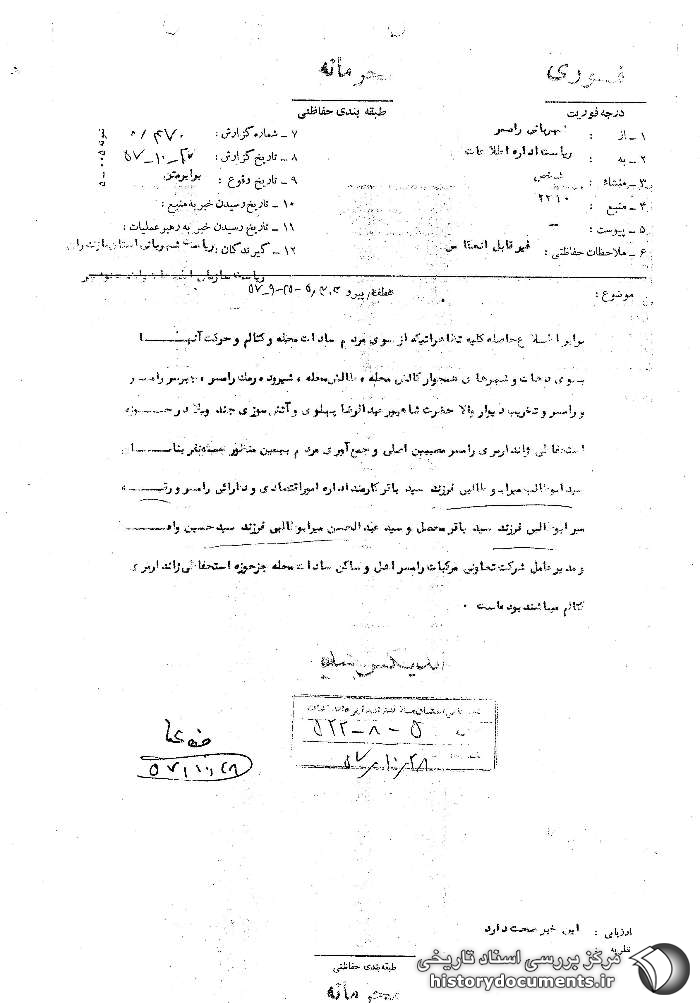 فوری
محرمانه
درجه فوریت
طبقه بندی حفاظتی
۱ - از : شهربانی رامسر
۲ - به : ریاست اداره اطلاعات
۳ - منشاء : شخص
۴ - منبع : ۲۲۱۰
۵ - پیوست : -
۶ - ملاحظات حفاظتی : غیر قابل انعکاس
۷ - شماره گزارش : ۵/۴۷۰
۸ - تاریخ گزارش : ۵۷-۱۰-
۹ - تاریخ وقوع : برابر متن
۱۰ - تاریخ رسیدن خبر به منبع :
۱۱ - تاریخ رسیدن خبر به رهبر عملیات :
۱۲ - گیرندگان : ریاست شهربانی استان مازندران
ریاست سازمان اطلاعات و امنیت
موضوع : عطف/پیرو ۵۷-۹-۲۵-
برابر اطلاع حاصله کلیه تظاهراتیکه از سوی مردم سادات محله و کتالم و حرکت آنها
بسوی دهات و شهرهای همجوار طالش محله ، شیرود رمک رامسر ،
و رامسر و تخریب دیوار والا حضرت شاهپور عبدالرضا پهلوی و آتش سوزی چند ویلا در حوزه
استحفاظی ژاندارمری رامسر مسببین اصلی و جمع آوری مردم بهمین منظور سه نفر بنام
سید ابوطالب میرابوطالبی فرزند سید باقر کارمند اداره امور اقتصادی و دارائی رامسر و
میرابوطالبی فرزند سید باقر محصل و سید عبدالحسن میرابوطالبی فرزند سید حسین
و مدیر عامل شرکت تعاونی مرکبات رامسر اهل و ساکن سادات محله جز حوزه استحفاظی ژاندارمری
کتالم میباشند بوده است .
۵-۸-۵۲۲
۵۷/۱۰/۲۸
۵۷/۱۰/۲۸
ارزیابی : این خبر صحت دارد
نظریه
طبقه بندی حفاظتی
محرمانه
مرکز بررسی اسناد تاریخی
historydocuments.ir